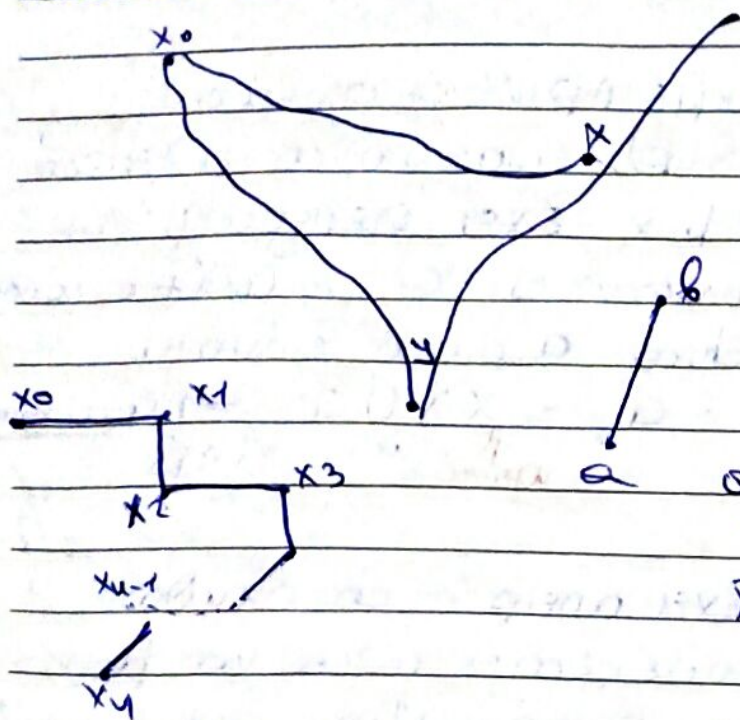 x0
x
y
b
x0 x1
a
x2 x3
xn-1
xn